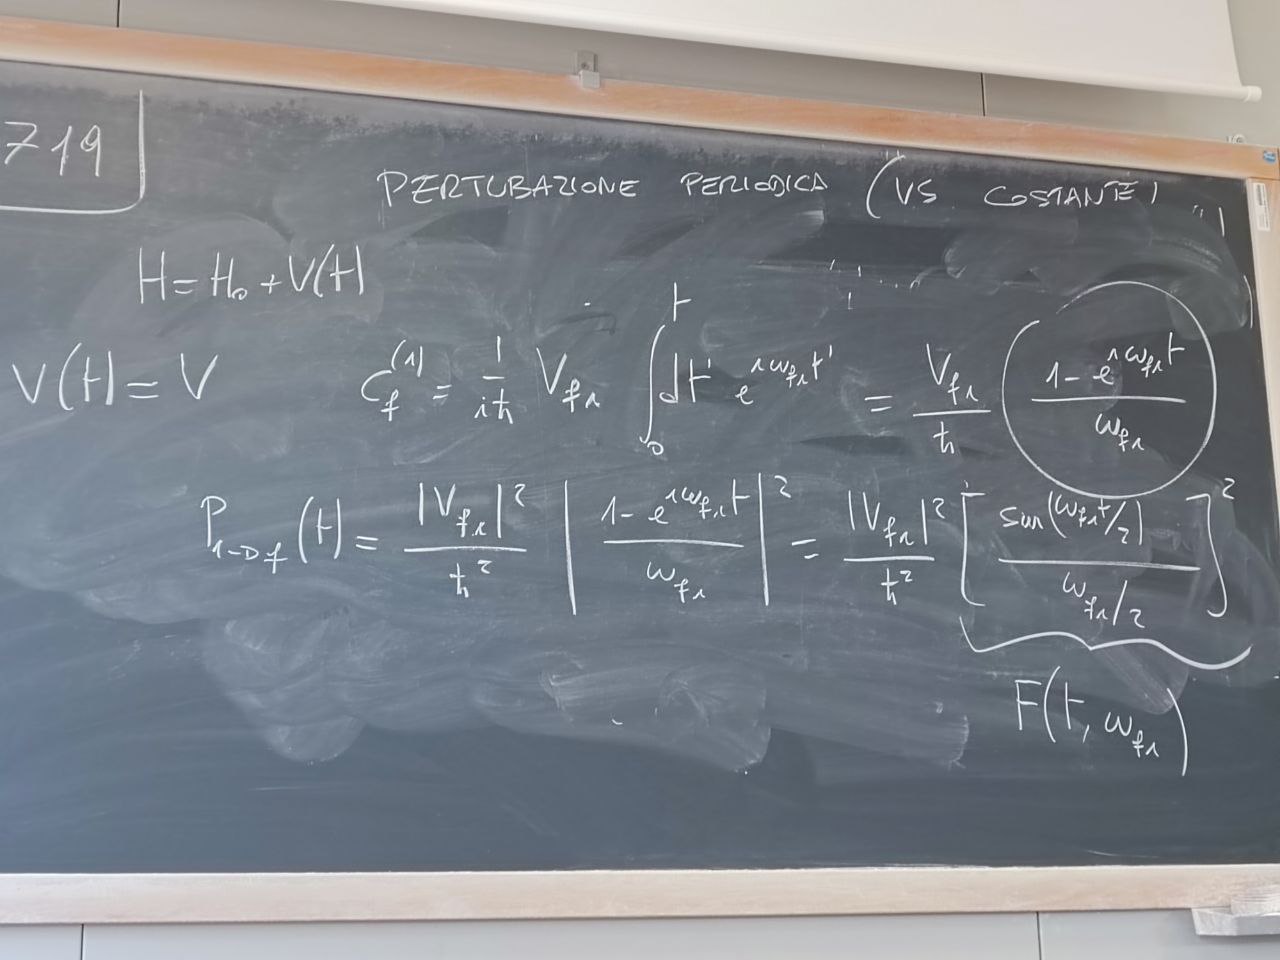 719
PERTUBAZIONE PERIODICA (VS COSTANTE)
H = H₀ + V(t)
V(t) = V
C_f^(1) = 1/(iħ) V_fi ∫₀ᵗ dt' e^(iω_fi t') = V_fi/ħ (1 - e^(iω_fi t))/ω_fi
P_i→f (t) = |V_fi|²/ħ² |(1 - e^(iω_fi t))/ω_fi|² = |V_fi|²/ħ² [sin(ω_fi t/2)/(ω_fi/2)]²
F(t, ω_fi)